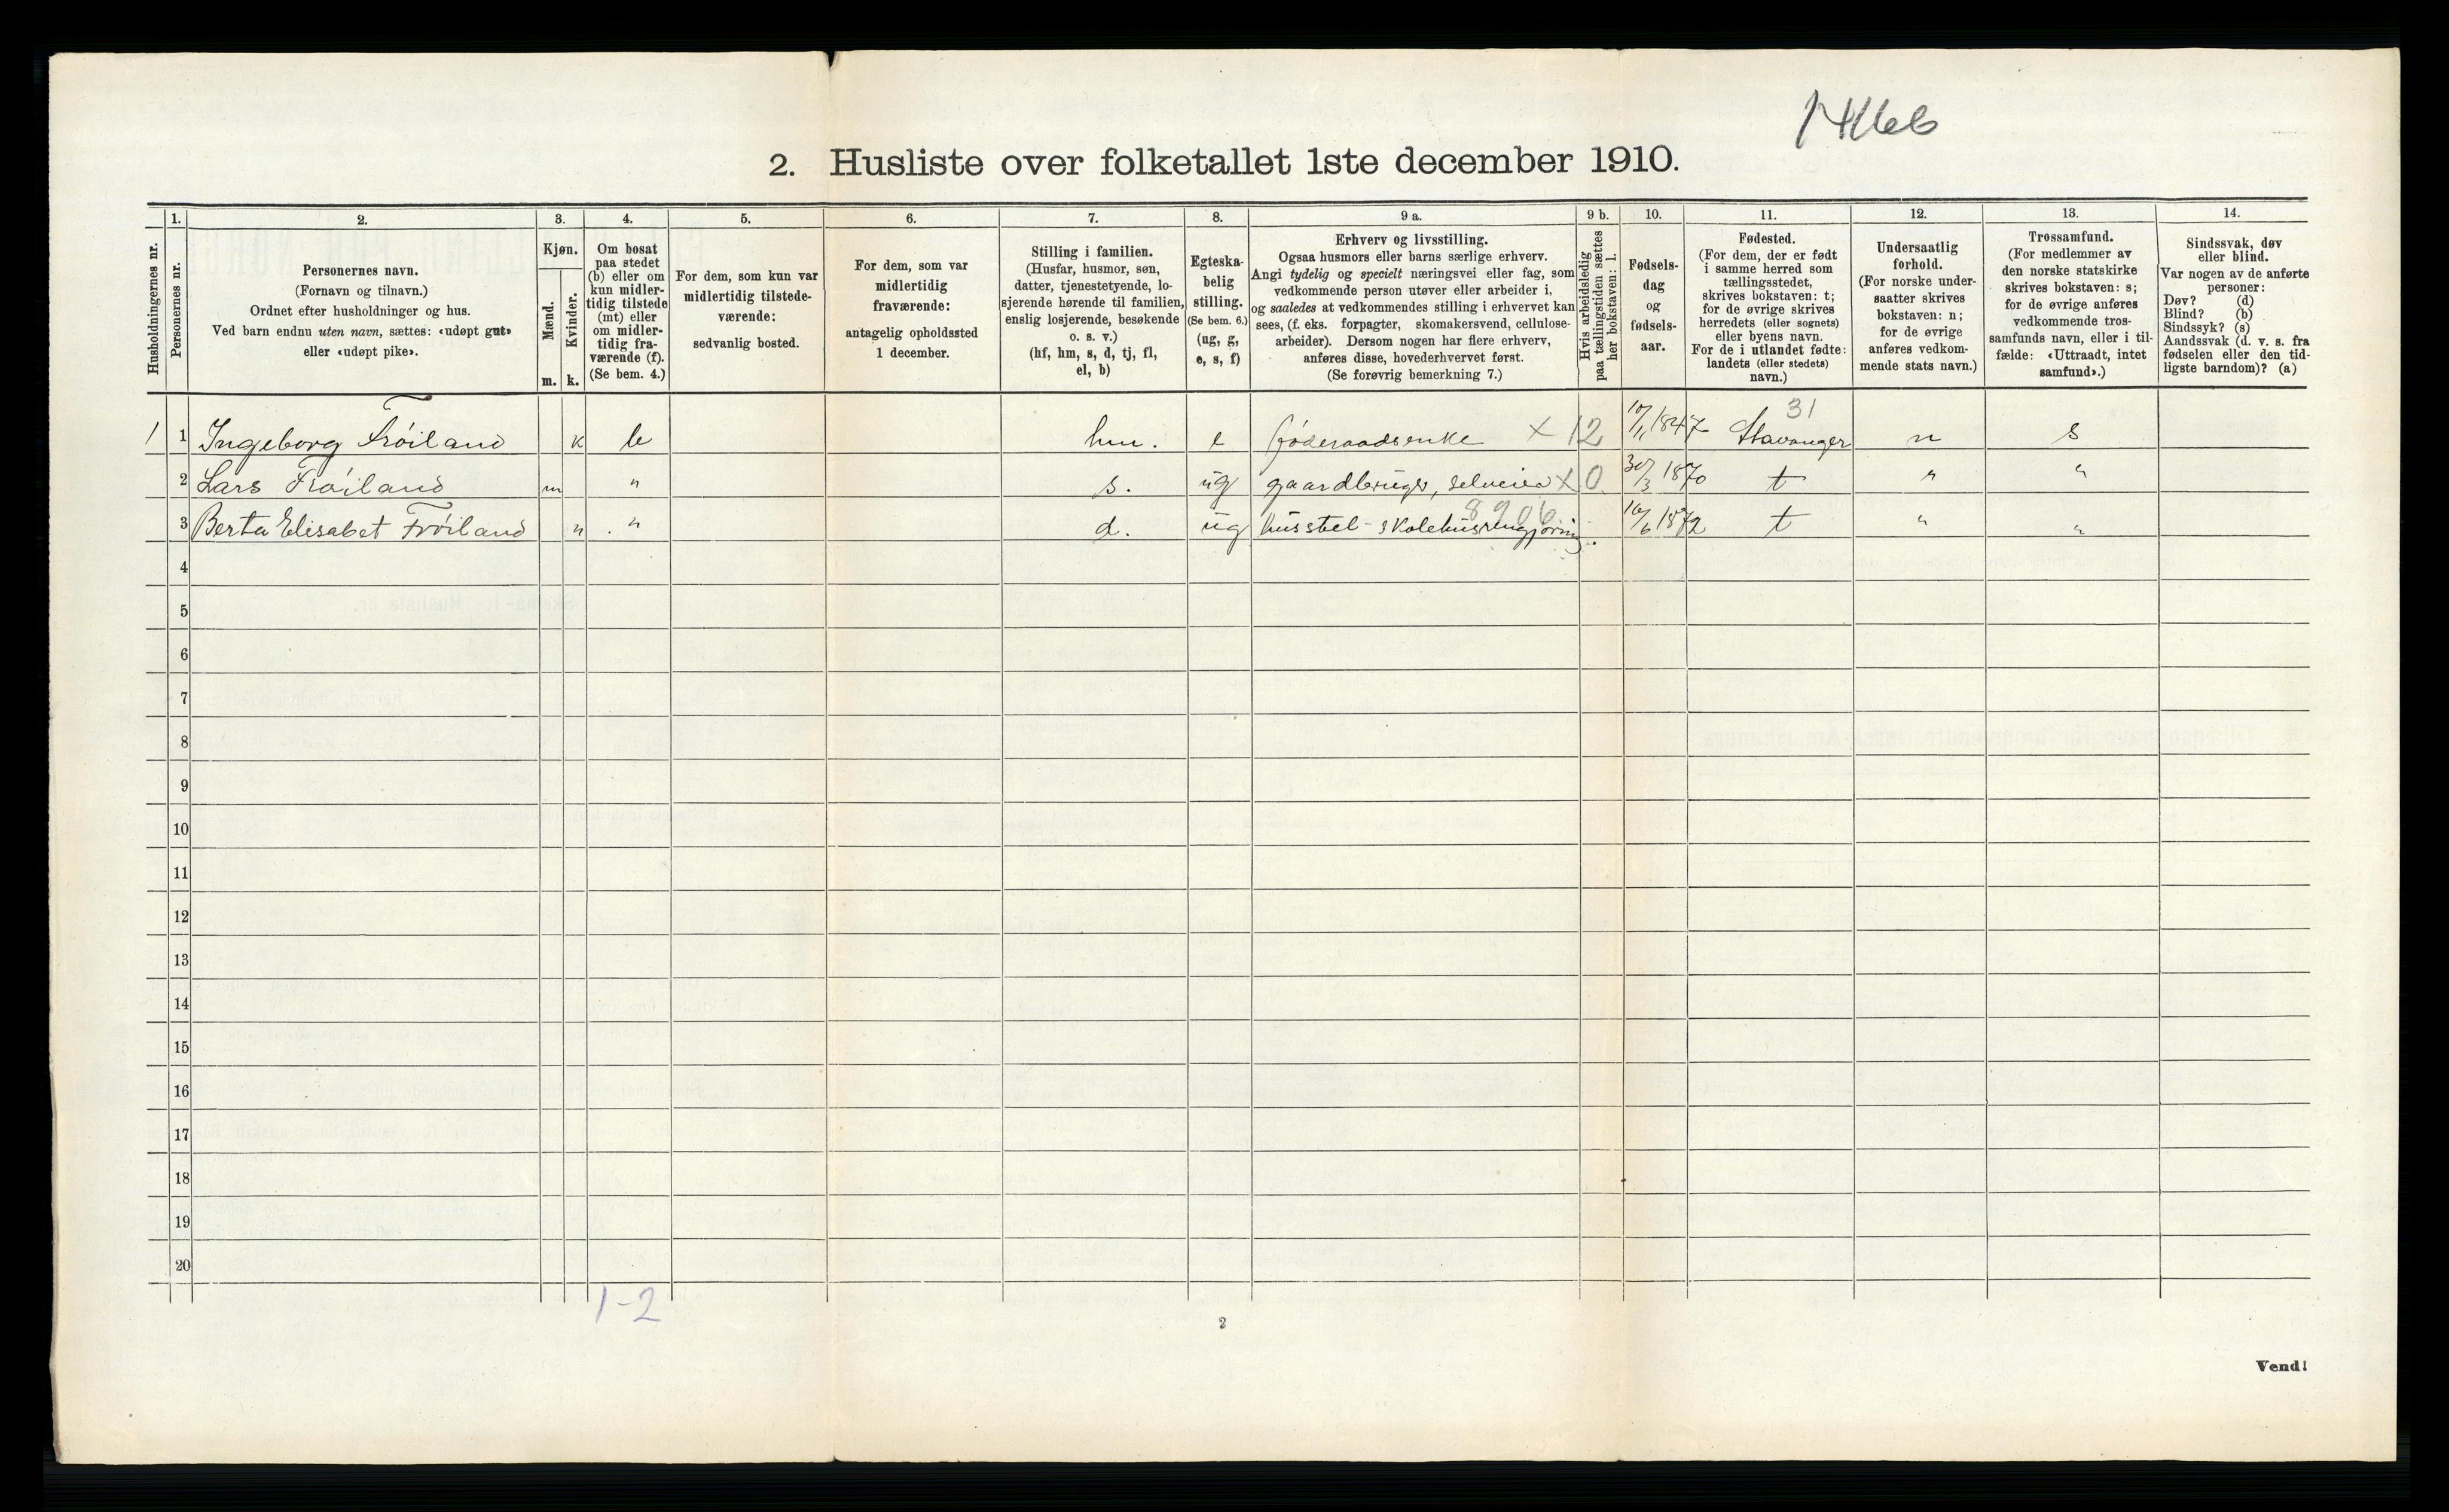 2. Husliste over folketallet 1ste december 1910.
1. 2. 3. 4. 5. 6. 7. 8. 9 a. 9 b. 10. 11. 12. 13. 14.
Husholdningernes nr.
Personernes nr.
Personernes navn.
(Fornavn og tilnavn.)
Ordnet efter husholdninger og hus.
Ved barn endnu uten navn, sættes: «udøpt gut»
eller «udøpt pike».
Kjøn.
Mænd.
Kvinder.
m. k.
Om bosat
paa stedet
(b) eller om
kun midler-
tidig tilstede
(mt) eller
om midler-
tidig fra-
værende (f).
(Se bem. 4.)
For dem, som kun var
midlertidig tilstede-
værende:
sedvanlig bosted.
For dem, som var
midlertidig
fraværende:
antagelig opholdssted
1 december.
Stilling i familien.
(Husfar, husmor, søn,
datter, tjenestetyende, lo-
sjerende hørende til familien,
enslig losjerende, besøkende
o. s. v.)
(hf, hm, s, d, tj, fl,
el, b)
Egteska-
belig
stilling.
(Se bem. 6.)
(ug, g,
e, s, f)
Erhverv og livsstilling.
Ogsaa husmors eller barns særlige erhverv.
Angi tydelig og specielt næringsvei eller fag, som
vedkommende person utøver eller arbeider i,
og saaledes at vedkommendes stilling i erhvervet kan
sees, (f. eks. forpagter, skomakersvend, cellulose-
arbeider). Dersom nogen har flere erhverv,
anføres disse, hovederhvervet først.
(Se forøvrig bemerkning 7.)
Hvis arbeidsledig
paa tællingstiden sættes
her bokstaven: l.
Fødsels-
dag
og
fødsels-
aar.
Fødested.
(For dem, der er født
i samme herred som
tællingsstedet,
skrives bokstaven: t;
for de øvrige skrives
herredets (eller sognets)
eller byens navn.
For de i utlandet fødte:
landets (eller stedets)
navn.)
Undersaatlig
forhold.
(For norske under-
saatter skrives
bokstaven: n;
for de øvrige
anføres vedkom-
mende stats navn.)
Trossamfund.
(For medlemmer av
den norske statskirke
skrives bokstaven: s;
for de øvrige anføres
vedkommende tros-
samfunds navn, eller i til-
fælde: «Uttraadt, intet
samfund».)
Sindssvak, døv
eller blind.
Var nogen av de anførte
personer:
Døv? (d)
Blind? (b)
Sindssyk? (s)
Aandssvak (d. v. s. fra
fødselen eller den tid-
ligste barndom)? (a)
31
1 1 Ingeborg Frøiland k b hm. e føderaadsenke x 12 1847 Stavanger n s
2 Lars Frøiland m " s. ug gaardbruger, selveier x 0 30/3 1870 t " "
8906
3 Berta Elisabet Frøiland " " d. ug husstel - skolehusrengjøring 16/6 1872 t " "
4
5
6
7
8
9
10
11
12
13
14
15
16
17
18
19
20
1-2
2
Vend!